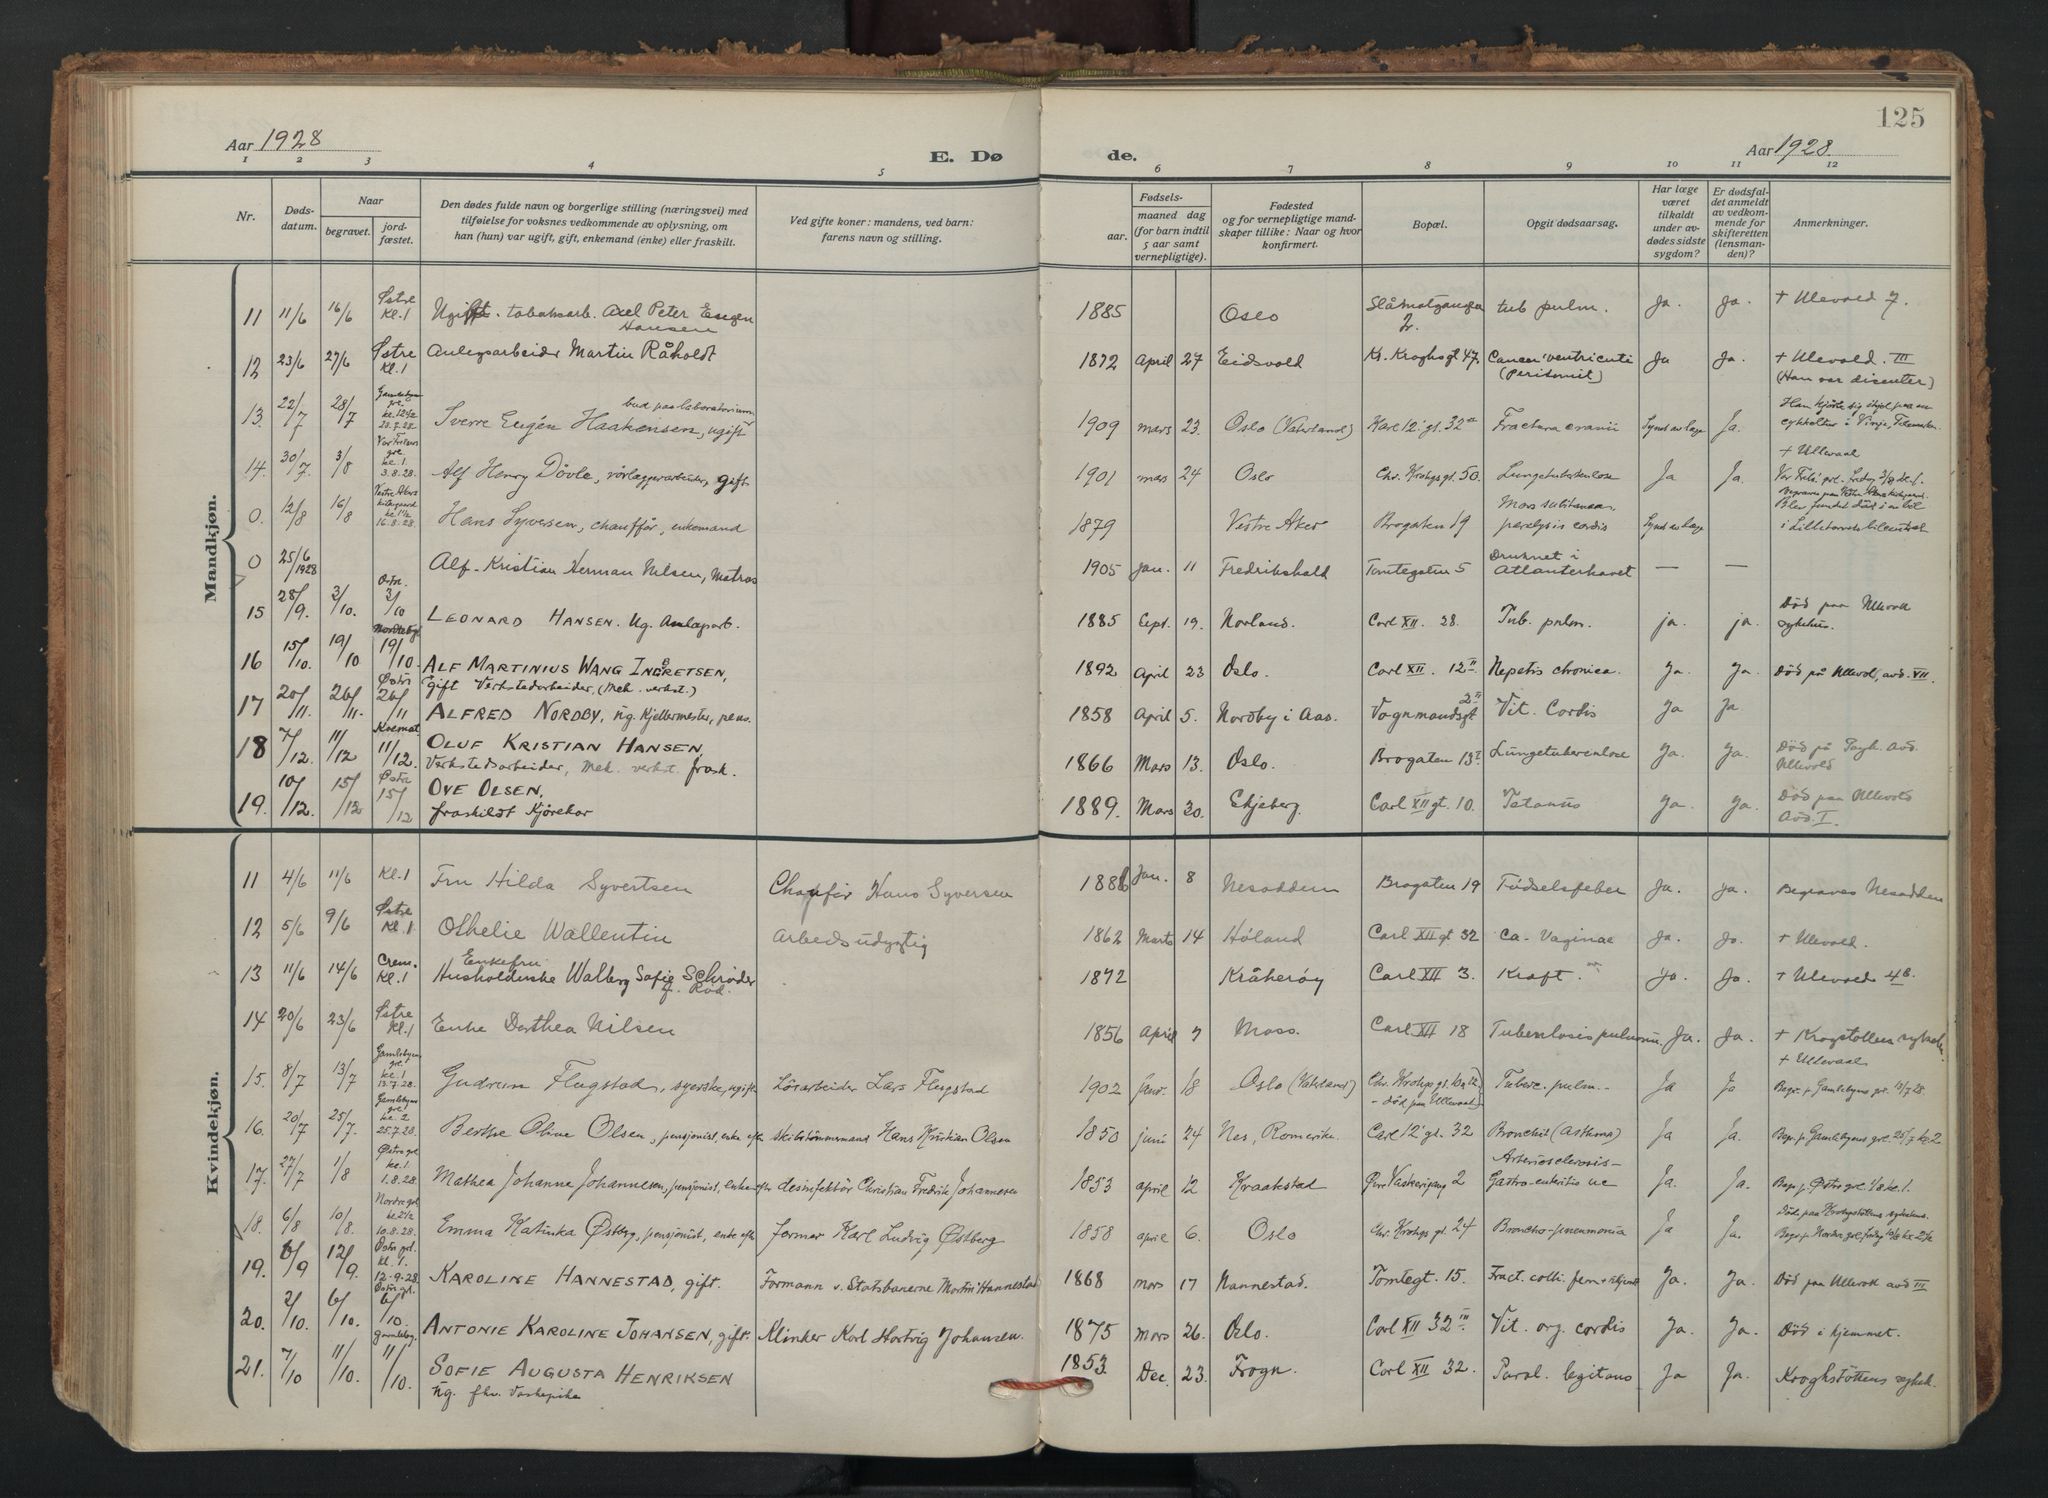 125
Aar 1928
E. Dø
de.
Aar 1928.
1 2 3 4 5 6 7 8 9 10 11 12
Nr.
Døds-
datum.
Naar
begravet.
jord-
fæstet.
Den dødes fulde navn og borgerlige stilling (næringsvei) med
tilføielse for voksnes vedkommende av oplysning, om
han (hun) var ugift, gift, enkemand (enke) eller fraskilt.
Ved gifte koner: mandens, ved barn:
farens navn og stilling.
Fødsels-
aar.
maaned dag
(for barn indtil
5 aar samt
vernepligtige).
Fødested
og for vernepligtige mand-
skaper tillike: Naar og hvor
konfirmert.
Bopæl.
Opgit dødsaarsag.
Har læge
været
tilkaldt
under av-
dødes sidste
sygdom?
Er dødsfal-
det anmeldt
av vedkom-
mende for
skifteretten
(lensman-
den)?
Anmerkninger.
Mandkjøn.
11 11/6 16/6 Østre Kl. 1 Ugift tobaksarb. Axel Peter Eugen Hansen 1885 Oslo 2. tub pulm. Ja. Ja. + Ulevold 7.
12 23/6 27/6 Østre Kl. 1 Anlegsarbeider Martin Råholdt 1872 April 27 Eidsvold Kr. Kroghsgt 47. Cancer ventriculi (Peritonit) Ja Ja. + Ulevold. III (Han var disenter)
13. 22/7 28/7 Gamlebyen grl. kl. 12½ 28.7.28. Sverre Eugén Haakensen, bud paa laboratorium, ugift 1909 mars 23. Oslo (Vaterland) Karl 12' gt. 32 Fractura cranii Synd av læge Ja. Han kjørte sig ihjel paa en cykkeltur i Vinje, Telemarken.
14. 30/7. 3/8 Vor Frelsers grl. kl. 1 3.8.28. Alf Henry Dövle, rörlæggerarbeider, gift 1901 mars 24 Oslo Chr. Krohgs gt. 50. Lungetuberkulose Ja Ja. + Ullevaal Vor Frels' grl. fredag 3/8 kl. 1.
0. 12/8 16/8 Vestre Akers kirkegaard kl. 1½ 16.8.28. Hans Syversen, chauffør, enkemand 1879 Vestre Aker Brogaten 19 Mors subitanea, paralysis cordis Synd av læge Begraves paa Vestre Akers kirkegaard. Blev fundet död i en bil i Lilletorvets bilcentral
0 25/6 1928 Alf Kristian Herman Nilsen, Matros 1905 Jan. 11 Fredrikshald Tomtegaten 5 Druknet i Atlanterhavet — —
15 28/9. 3/10. Østre. 3/10 LEONARD HANSEN. Ug. Anlægsarb. 1885 Sept. 19. Norland. Carl XII. 28. Tub. pulm. ja. ja. Död paa Ullevold sykehus.
16 15/10. 19/10 19/10. ALF MARTINIUS WANG INGRETSEN, Gift Verkstedarbeider, (Mek. verkst.) 1892 April 23 Oslo. Carl XII. 12 II Nepetis chronica. Ja Ja Död på Ullevol, avd. VII.
17 20/11. 26/11. Østre 26/11 ALFRED NORDBY, ug. Kjellermester, pens. 1858 April 5. Nordby i Aas. Vognmandsgt 2 II Vit. Cordis Ja Ja
18 7/12. 11/12 Kremat. 11/12. OLUF KRISTIAN HANSEN, Verkstedsarbeider, Mek. verkst. frask. 1866 Mars 13. Oslo. Brogaten 13 I Lungetuberculose Ja. Ja. Död på Psyk. Avd. Ullevold
19. 10/12. 15/12 Østre 15/12 OVE OLSEN, fraskildt Kjörekar 1889. Mars 20. Ekjeberg. Carl XII gt. 10. Tetanus Ja. Ja. Död paa Ullevold Avd. I.
Kvindekjøn.
11 4/6 11/6 Kl. 1 Fru Hilda Syvertsen Chauffør Hans Syversen 1886 Jan. 8 Nesodden Brogaten 19 Fødselsfeber Ja. Ja. Begraves Nesodden
12 5/6 9/6 Østre Kl. 1 Othelie Wallentin Arbedsudygtig 1862 Marts 14 Høland Carl XII gt 32 Ca. Vaginae Ja. Ja. + Ulevold.
13 11/6 14/6 Crem. Kl. 1 Enkefru Husholderske Walborg Sofie Schrøder f. Rød. 1872 Kråkerøy Carl XII 3. Kraft. Ja. Ja. + Ulevold 4 B.
14 20/6 23/6 Østre Kl. 1 Enke Dorthea Nilsen 1856 April 7 Moss. Carl XII 18 Tuberculosis pulmonu Ja. Ja. + Krogstøttens sykeh.
15. 8/7 13/7 Gamlebyens grl. kl. 1 13.7.28. Gudrun Flugstad, syerske, ugift Lörarbeider Lars Flugstad 1902 febr. 18 Oslo (Vaterland) Chr. Krohgs gt. 10a IV - död paa Ullevaal) Tuberc. pulm. - Ja Ja + Ullevaal Begr. p. Gamlebyens grl. 13/7 28.
16. 20/7 25/7. Gamlebyens grl. kl. 2 25.7.28. Berthe Oline Olsen, pensjonist, enke efter skibstömmermand Hans Kristian Olsen 1850 juni 24 Nes, Romerike. Carl 12' gt. 32 Bronchit (Asthma) Ja Ja. Begr. p. Gamlebyens grl. 25/7 kl. 2
17. 27/7 1/8 Østre grl. kl. 1 1.8.28. Mathea Johanne Johannesen, pensjonist, enke efter desinfektör Christian Fredrik Johannesen 1853 april 12 Kraakstad 2 Arteriosclerosis - Gastro-enteritis ac Ja. Ja. Begr. p. Østre grl. 1/8 kl. 1.
18. 6/8 10/8. Nordre grl. kl. 2½ 10.8.28. Emma Katinka Østberg, pensjonist, enke efter former Karl Ludvig Østberg 1858 april 6. Oslo Chr. Krohgs gt 24 Broncho-pneumonia Ja Ja. Död paa Krohgstöttens sykehus. Begr. p. Nordre grl. fredag 10/8 kl. 2½
19. 6/9 12/9. Østre grl. kl. 1. 12.9.28. KAROLINE HANNESTAD, gift. Formann v. Statsbanerne Martin Hannestad 1868 Mars 17 Nannestad. Tomtegt. 15. Fract. colli. fem. Ja. Ja. Död paa Ullevold avd III
20. 2/10. 6/10. Østre grl. 6/10. ANTONIE KAROLINE JOHANSEN, gift. Klinker Karl Hartvig Johansen. 1875 Mars 26. Oslo. Carl XII 32 III Vit. org. cordis Ja. Ja. Död i hjemmet.
21. 7/10 11/10. Gamleby. 11/10. SOFIE AUGUSTA HENRIKSEN ug. fhv. Vaskepike 1853 Dec. 23. Frogn. Carl XII 32. Paral. Ja Ja. Kroghstöttens sykeh.